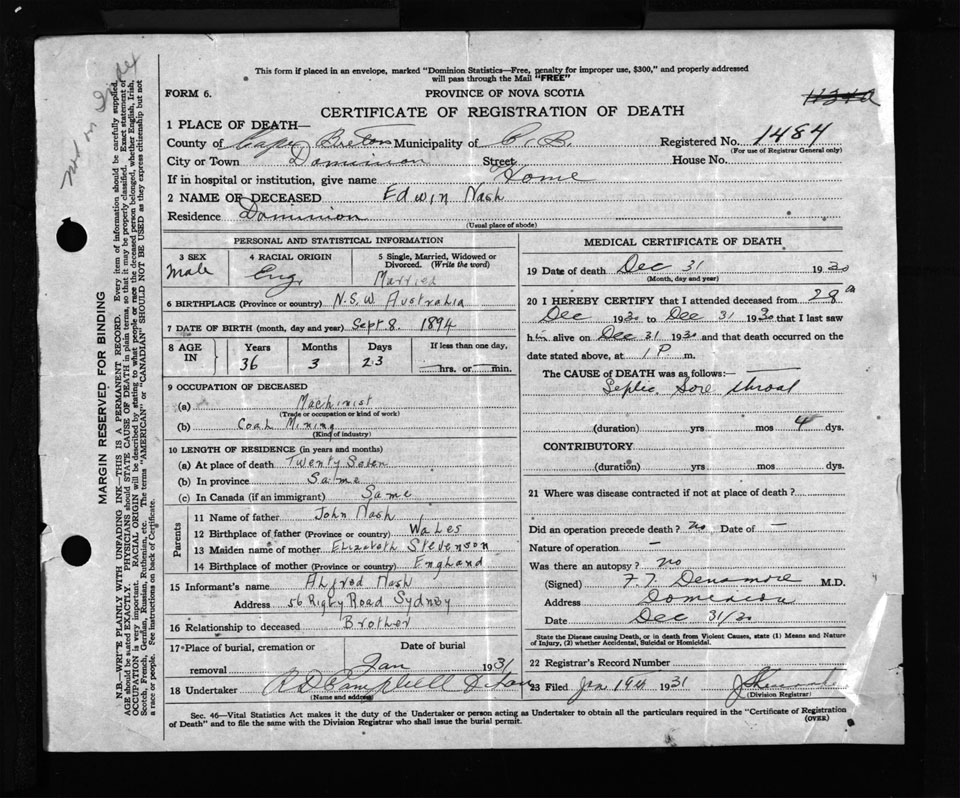 This form if placed in an envelope, marked "Dominion Statistics—Free, penalty for improper use, $300," and properly addressed
will pass through the Mail "FREE"
FORM 6.
PROVINCE OF NOVA SCOTIA
CERTIFICATE OF REGISTRATION OF DEATH
1 PLACE OF DEATH—
County of Cape Breton Municipality of C. B. Registered No. 1484
(For use of Registrar General only)
City or Town Dominion Street House No.
If in hospital or institution, give name Home
2 NAME OF DECEASED Edwin Nash
Residence Dominion
(Usual place of abode)
PERSONAL AND STATISTICAL INFORMATION
3 SEX 4 RACIAL ORIGIN 5 Single, Married, Widowed or Divorced. (Write the word)
Male Eng. Married
6 BIRTHPLACE (Province or country) N.S.W. Australia
7 DATE OF BIRTH (month, day and year) Sept 8. 1894
8 AGE IN Years Months Days If less than one day,
36 3 23 hrs. or min.
9 OCCUPATION OF DECEASED
(a) Machinist
(Trade or occupation or kind of work)
(b) Coal Mining
(Kind of industry)
10 LENGTH OF RESIDENCE (in years and months)
(a) At place of death Twenty Seven
(b) In province Same
(c) In Canada (if an immigrant) Same
Parents
11 Name of father John Nash
12 Birthplace of father (Province or country) Wales
13 Maiden name of mother Elizabeth Stevenson
14 Birthplace of mother (Province or country) England
15 Informant's name Alfred Nash
Address 56 Rigby Road Sydney
16 Relationship to deceased Brother
17 Place of burial, cremation or Date of burial
removal Jan 1931
18 Undertaker
(Name and address)
MEDICAL CERTIFICATE OF DEATH
19 Date of death Dec 31 1930
(Month, day and year)
20 I HEREBY CERTIFY that I attended deceased from 28th
Dec 1930 to Dec 31 1930 that I last saw
him alive on Dec 31 1930 and that death occurred on the
date stated above, at 1 P m.
The CAUSE of DEATH was as follows:—
Septic Sore throat
(duration) yrs mos 4 dys.
CONTRIBUTORY
(duration) yrs mos dys.
21 Where was disease contracted if not at place of death?
Did an operation precede death? no Date of —
Nature of operation —
Was there an autopsy? no
(Signed) M.D.
Address Dominion
Date Dec 31/30
State the Disease causing Death, or in death from Violent Causes, state (1) Means and Nature
of Injury, (2) whether Accidental, Suicidal or Homicidal.
22 Registrar's Record Number
23 Filed Jan 19th 1931
(Division Registrar)
Sec. 46—Vital Statistics Act makes it the duty of the Undertaker or person acting as Undertaker to obtain all the particulars required in the "Certificate of Registration
of Death" and to file the same with the Division Registrar who shall issue the burial permit.
(OVER)
MARGIN RESERVED FOR BINDING
N.B.—WRITE PLAINLY WITH UNFADING INK—THIS IS A PERMANENT RECORD. Every item of information should be carefully supplied.
AGE should be stated EXACTLY. PHYSICIANS should STATE CAUSE OF DEATH in plain terms, so that it may be properly classified. Exact statement of
OCCUPATION is very important. RACIAL ORIGIN will be described by stating to what people or race the deceased person belonged, whether English, Irish,
Scotch, French, German, Russian, Ruthenian, etc. The terms "AMERICAN" or "CANADIAN" SHOULD NOT BE USED as they express citizenship but not
a race or people. See instructions on back of Certificate.